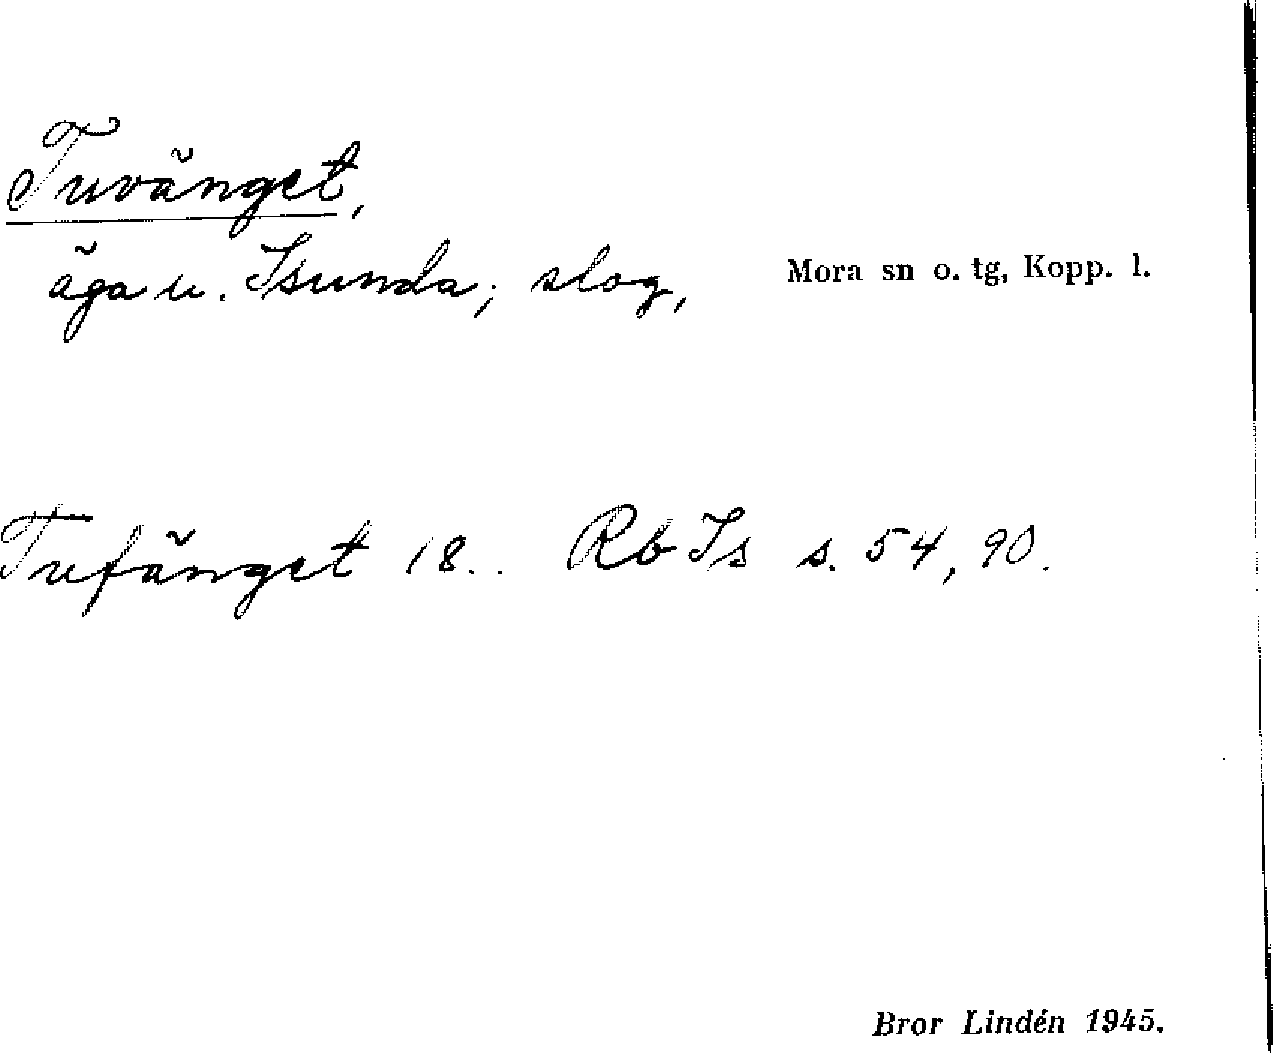 Tuvänget,
äga u. Isunda; slog, Mora sn o. tg, Kopp. l.
Tufänget 18.. Rb Is s. 54, 90.
Bror Lindén 1945.